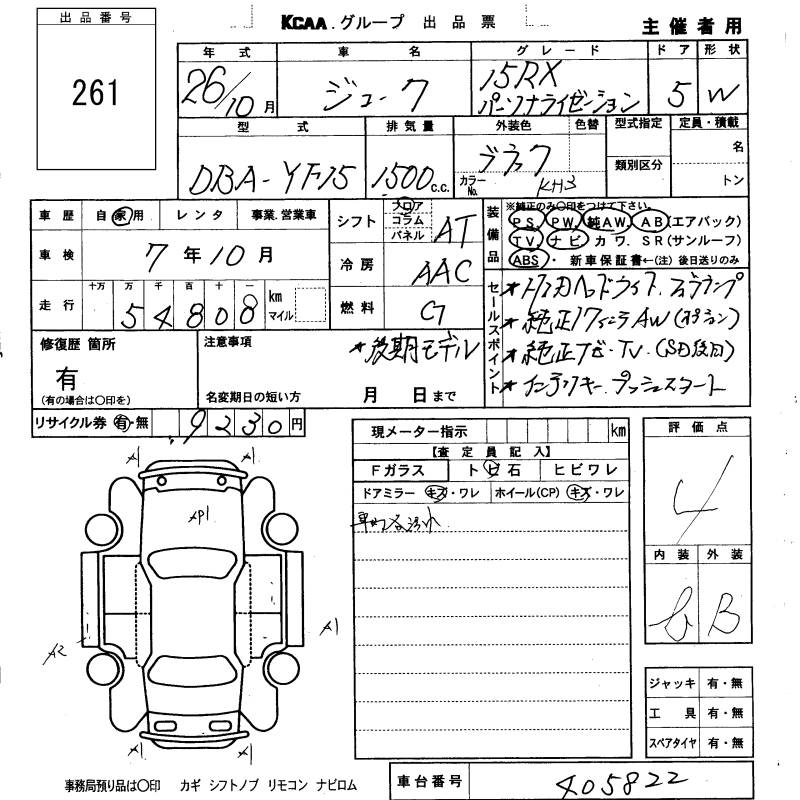 出品番号
261
KCAA.グループ 出品票
主催者用
年式 車名 グレード ドア 形状
26/10月 ジューク 15RX パーソナライゼーション 5 W
型式 排気量 外装色 色替 型式指定 定員・積載
DBA-YF15 1500c.c. ブラック 名
カラーNo. KH3 類別区分 トン
車歴 自家用 レンタ 事業.営業車
シフト フロア コラム パネル AT
装備品 ※純正のみ〇印をつけて下さい。
PS. PW. 純AW. AB(エアバック)
TV. ナビ カワ. SR(サンルーフ)
ABS・ 新車保証書←(注)後日送りのみ
車検 7年10月
冷房 AAC
走行 十万 万 千 百 十 一
54808 km マイル
燃料 G
セールスポイント
★純正17インチAW(オプション)
★純正ナビ・TV.(SD後日)
★インテリキー プッシュスタート
修復歴 箇所
有
(有の場合は〇印を)
注意事項
★後期モデル
名変期日の短い方 月 日まで
リサイクル券 有・無 9230円
現メーター指示 km
【査定員記入】
Fガラス トビ石 ヒビワレ
ドアミラー キズ・ワレ ホイール(CP) キズ・ワレ
評価点
4
内装 外装
b B
A1 A1
AP1
A2 A1
A1 A1
ジャッキ 有・無
工具 有・無
スペアタイヤ 有・無
事務局預り品は〇印 カギ シフトノブ リモコン ナビロム
車台番号 405822